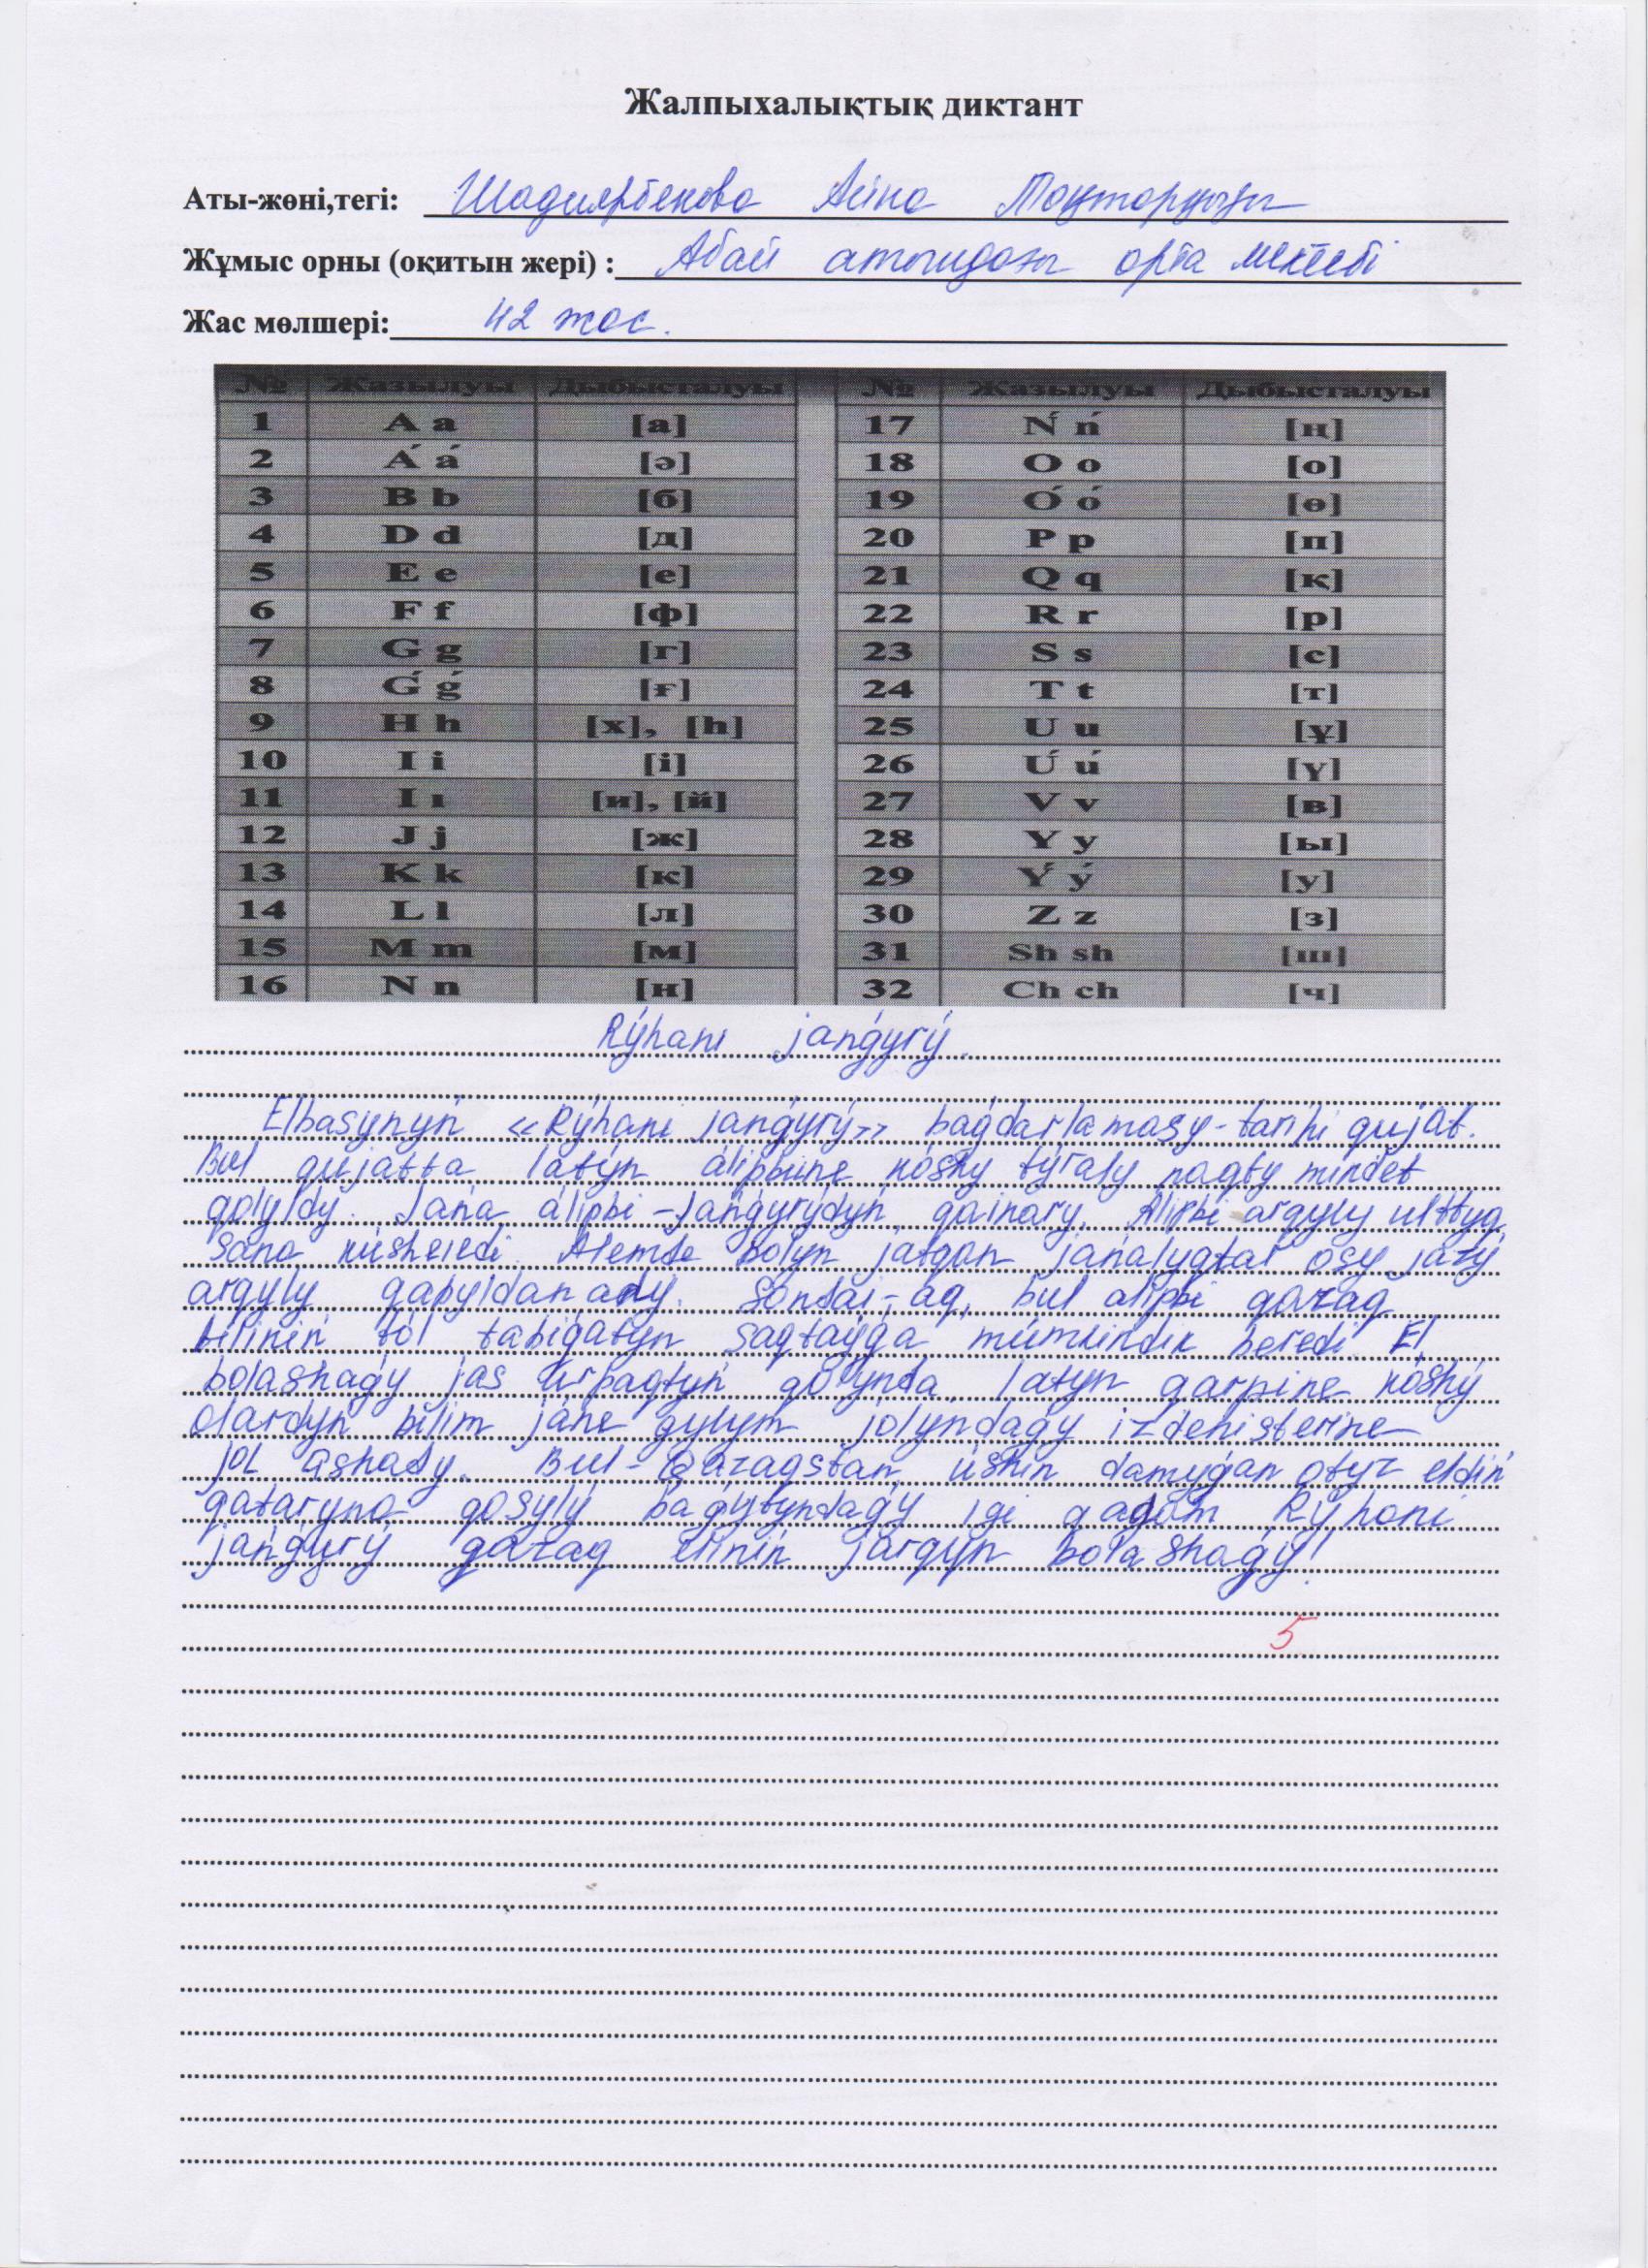 Жалпыхалықтық диктант
Аты-жөні,тегі: Шадиярбекова Айна Тоқтарқызы
Жұмыс орны (оқитын жері) : Абай атындағы орта мектебі
Жас мөлшері: 42 жас.
№ Жазылуы Дыбысталуы № Жазылуы Дыбысталуы
1 A a [а] 17 Ń ń [ң]
2 Á á [ә] 18 O o [о]
3 B b [б] 19 Ó ó [ө]
4 D d [д] 20 P p [п]
5 E e [е] 21 Q q [қ]
6 F f [ф] 22 R r [р]
7 G g [г] 23 S s [с]
8 Ǵ ǵ [ғ] 24 T t [т]
9 H h [х], [һ] 25 U u [ұ]
10 I i [і] 26 Ú ú [ү]
11 I ı [и], [й] 27 V v [в]
12 J j [ж] 28 Y y [ы]
13 K k [к] 29 Ý ý [у]
14 L l [л] 30 Z z [з]
15 M m [м] 31 Sh sh [ш]
16 N n [н] 32 Ch ch [ч]
Rýhanı jańǵyrý.
Elbasynyń «Rýhanı jańǵyrý» baǵdarlamasy-tarıhi qujat.
Bul qujatta latyn álipbıine kóshý týraly naqty mindet
qoıyldy. Jańa álipbi-jańǵyrýdyń qainary. Álipbi arqyly ulttyq
sana kúsheıedi. Álemde bolyn jatqan jańalyqtar osy jazý
arqyly qabyldanady. Sondai-aq, bul álipbi qazaq
tiliniń tól tabiǵatyn saqtaýǵa múmkindik beredi. El
bolashaǵy jas urpaqtyń qolynda latyn qarpine kóshý
olardyń bilim jáne ǵylym jolyndaǵy izdenisterine
jol ashady. Bul-Qazaqstan úshin damyǵan otyz eldiń
qataryna qosylý baǵytyndaǵy igi qadam Rýhani
jańǵyrý qazaq eliniń jarqyn bolashaǵy!
5